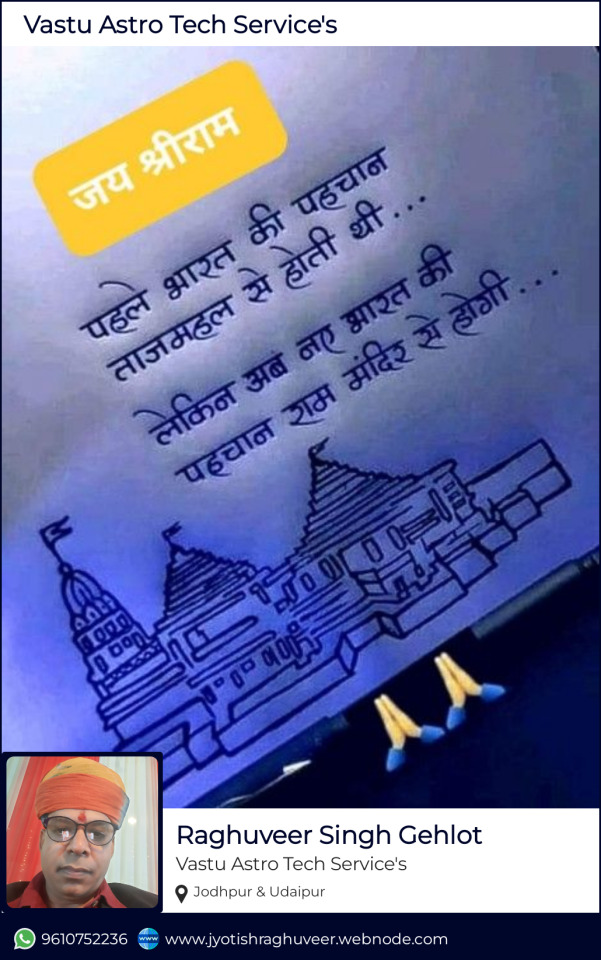 Vastu Astro Tech Service's
जय श्रीराम
पहले भारत की पहचान
ताजमहल से होती थी ...
लेकिन अब नए भारत की
पहचान राम मंदिर से होगी ...
Raghuveer Singh Gehlot
Vastu Astro Tech Service's
Jodhpur & Udaipur
9610752236 www.jyotishraghuveer.webnode.com